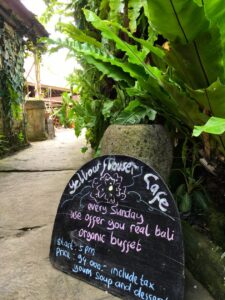 yellow flower Cafe
every Sunday
we offer you real bali
organic buffet
start 5 pm
price 94.000 - include tax
soup and dessert